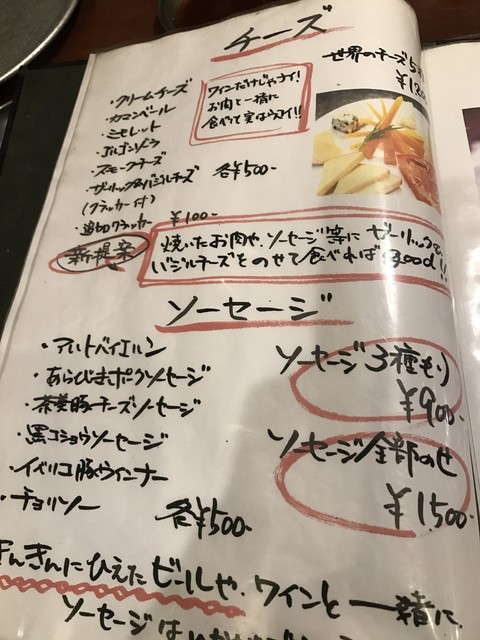 チーズ
・クリームチーズ
・カマンベール
・ミモレット
・ゴルゴンゾーラ
・スモークチーズ
・ガーリック&バジルチーズ
(クラッカー付)
各¥500-
・追加クラッカー ¥100-
ワインだけじゃナイ!
お肉と一緒に
食べて実はウマイ!!
世界のチーズ5
新提案
焼いたお肉や、ソーセージ等にガーリック&
バジルチーズをのせて食べればgood!!
ソーセージ
・アルトバイエルン
・あらびきポークソーセージ
・茶美豚チーズソーセージ
・黒コショウソーセージ
・イベリコ豚ウインナー
・チョリソー
各¥500-
ソーセージ3種もり
¥900-
ソーセージ全部のせ
¥1,500-
きんきんにひえたビールや、ワインと一緒に、
ソーセージは